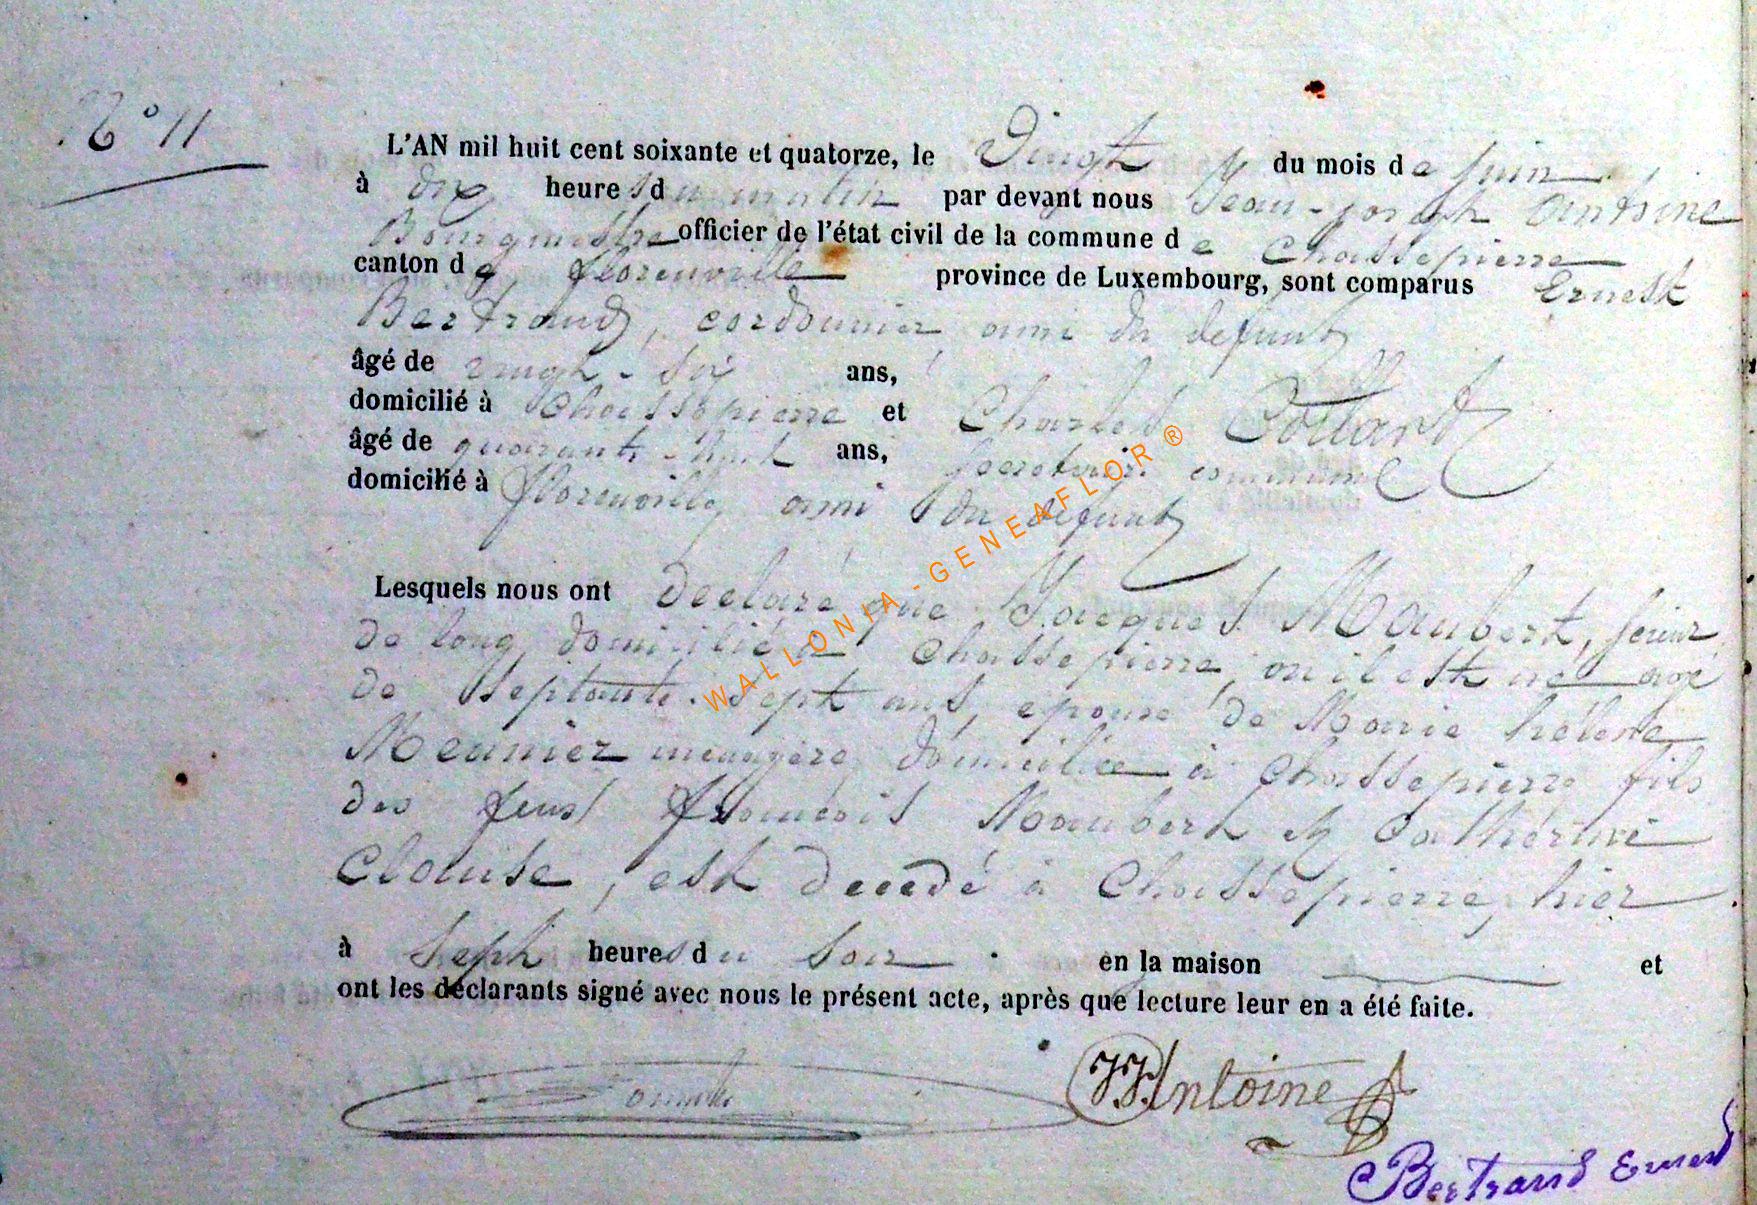 N° 11
L'AN mil huit cent soixante et quatorze, le Vingt du mois de juin
à dix heures du matin par devant nous Jean-joseph Antoine
Bourgmestre officier de l'état civil de la commune de Chassepierre
canton de florenville province de Luxembourg, sont comparus Ernest
Bertrand, cordonnier ami du defunt
âgé de vingt-six ans,
domicilié à Chassepierre et Charles Collart
âgé de quarante-huit ans, Secretaire communal
domicilié à florenville ami du defunt
Lesquels nous ont declaré que Jacques Maubert, scieur
de long domicilié à Chassepierre, où il est né agé
de septante-sept ans, epoux de Marie hélène
Meunier menagère, domiciliée à Chassepierre fils
des feus françois Maubert et Cathérine
Clause, est decedé à Chassepierre, hier
à sept heures du soir en la maison et
ont les déclarants signé avec nous le présent acte, après que lecture leur en a été faite.
JJAntoine
Bertrand Ernest
WALLONIA-GENEAFLOR ®